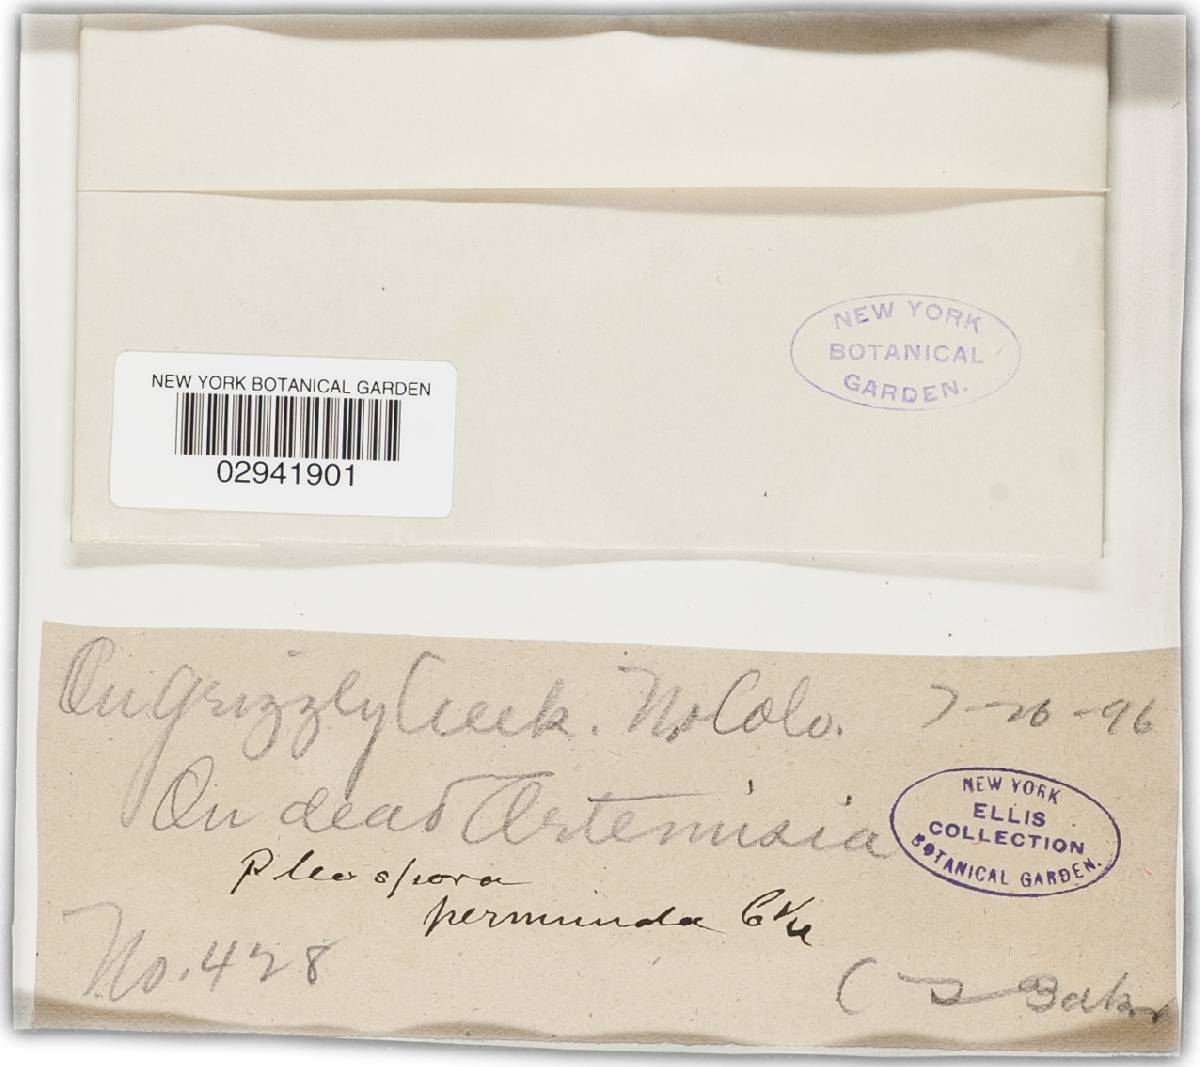 NEW YORK
BOTANICAL
GARDEN.
NEW YORK BOTANICAL GARDEN
02941901
On Grizzly Creek. No Colo. 7-26-96
On dead Artemisia
NEW YORK
ELLIS
COLLECTION
BOTANICAL GARDEN.
Pleospora
permunda Cke
No. 428
C F Baker